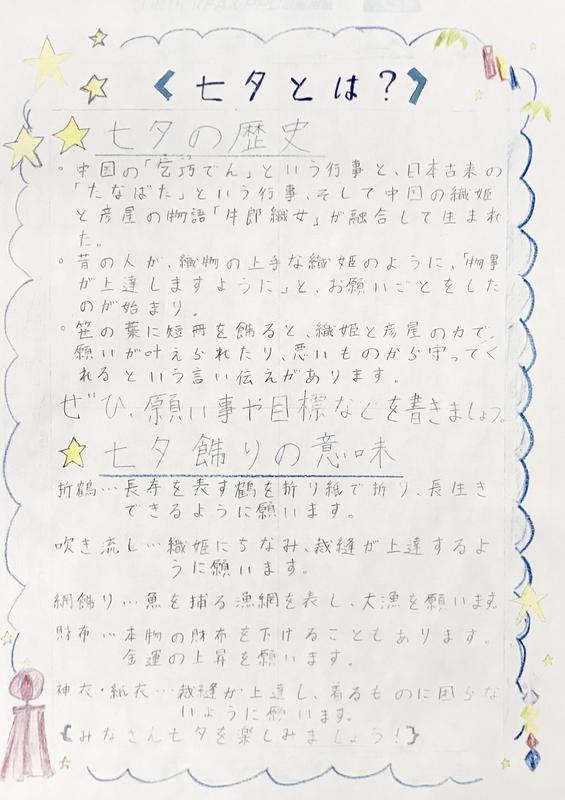 〈七夕とは?〉
七夕の歴史
。中国の「乞巧でん」という行事と、日本古来の
「たなばた」という行事、そして中国の織姫
と彦星の物語「牛郎織女」が融合して生まれ
た。
。昔の人が、織物の上手な織姫のように、「物事
が上達しますように」と、お願いごとをした
のが始まり。
。笹の葉に短冊を飾ると、織姫と彦星の力で、
願いが叶えられたり、悪いものから守ってく
れるという言い伝えがあります。
ぜひ、願い事や目標などを書きましょう。
七夕飾りの意味
折鶴…長寿を表す鶴を折り紙で折り、長生き
できるように願います。
吹き流し…織姫にちなみ、裁縫が上達するよ
うに願います。
網飾り…魚を捕る漁網を表し、大漁を願います。
財布…本物の財布を下げることもあります。
金運の上昇を願います。
神衣・紙衣…裁縫が上達し、着るものに困らな
いように願います。
{みなさん七夕を楽しみましょう!}